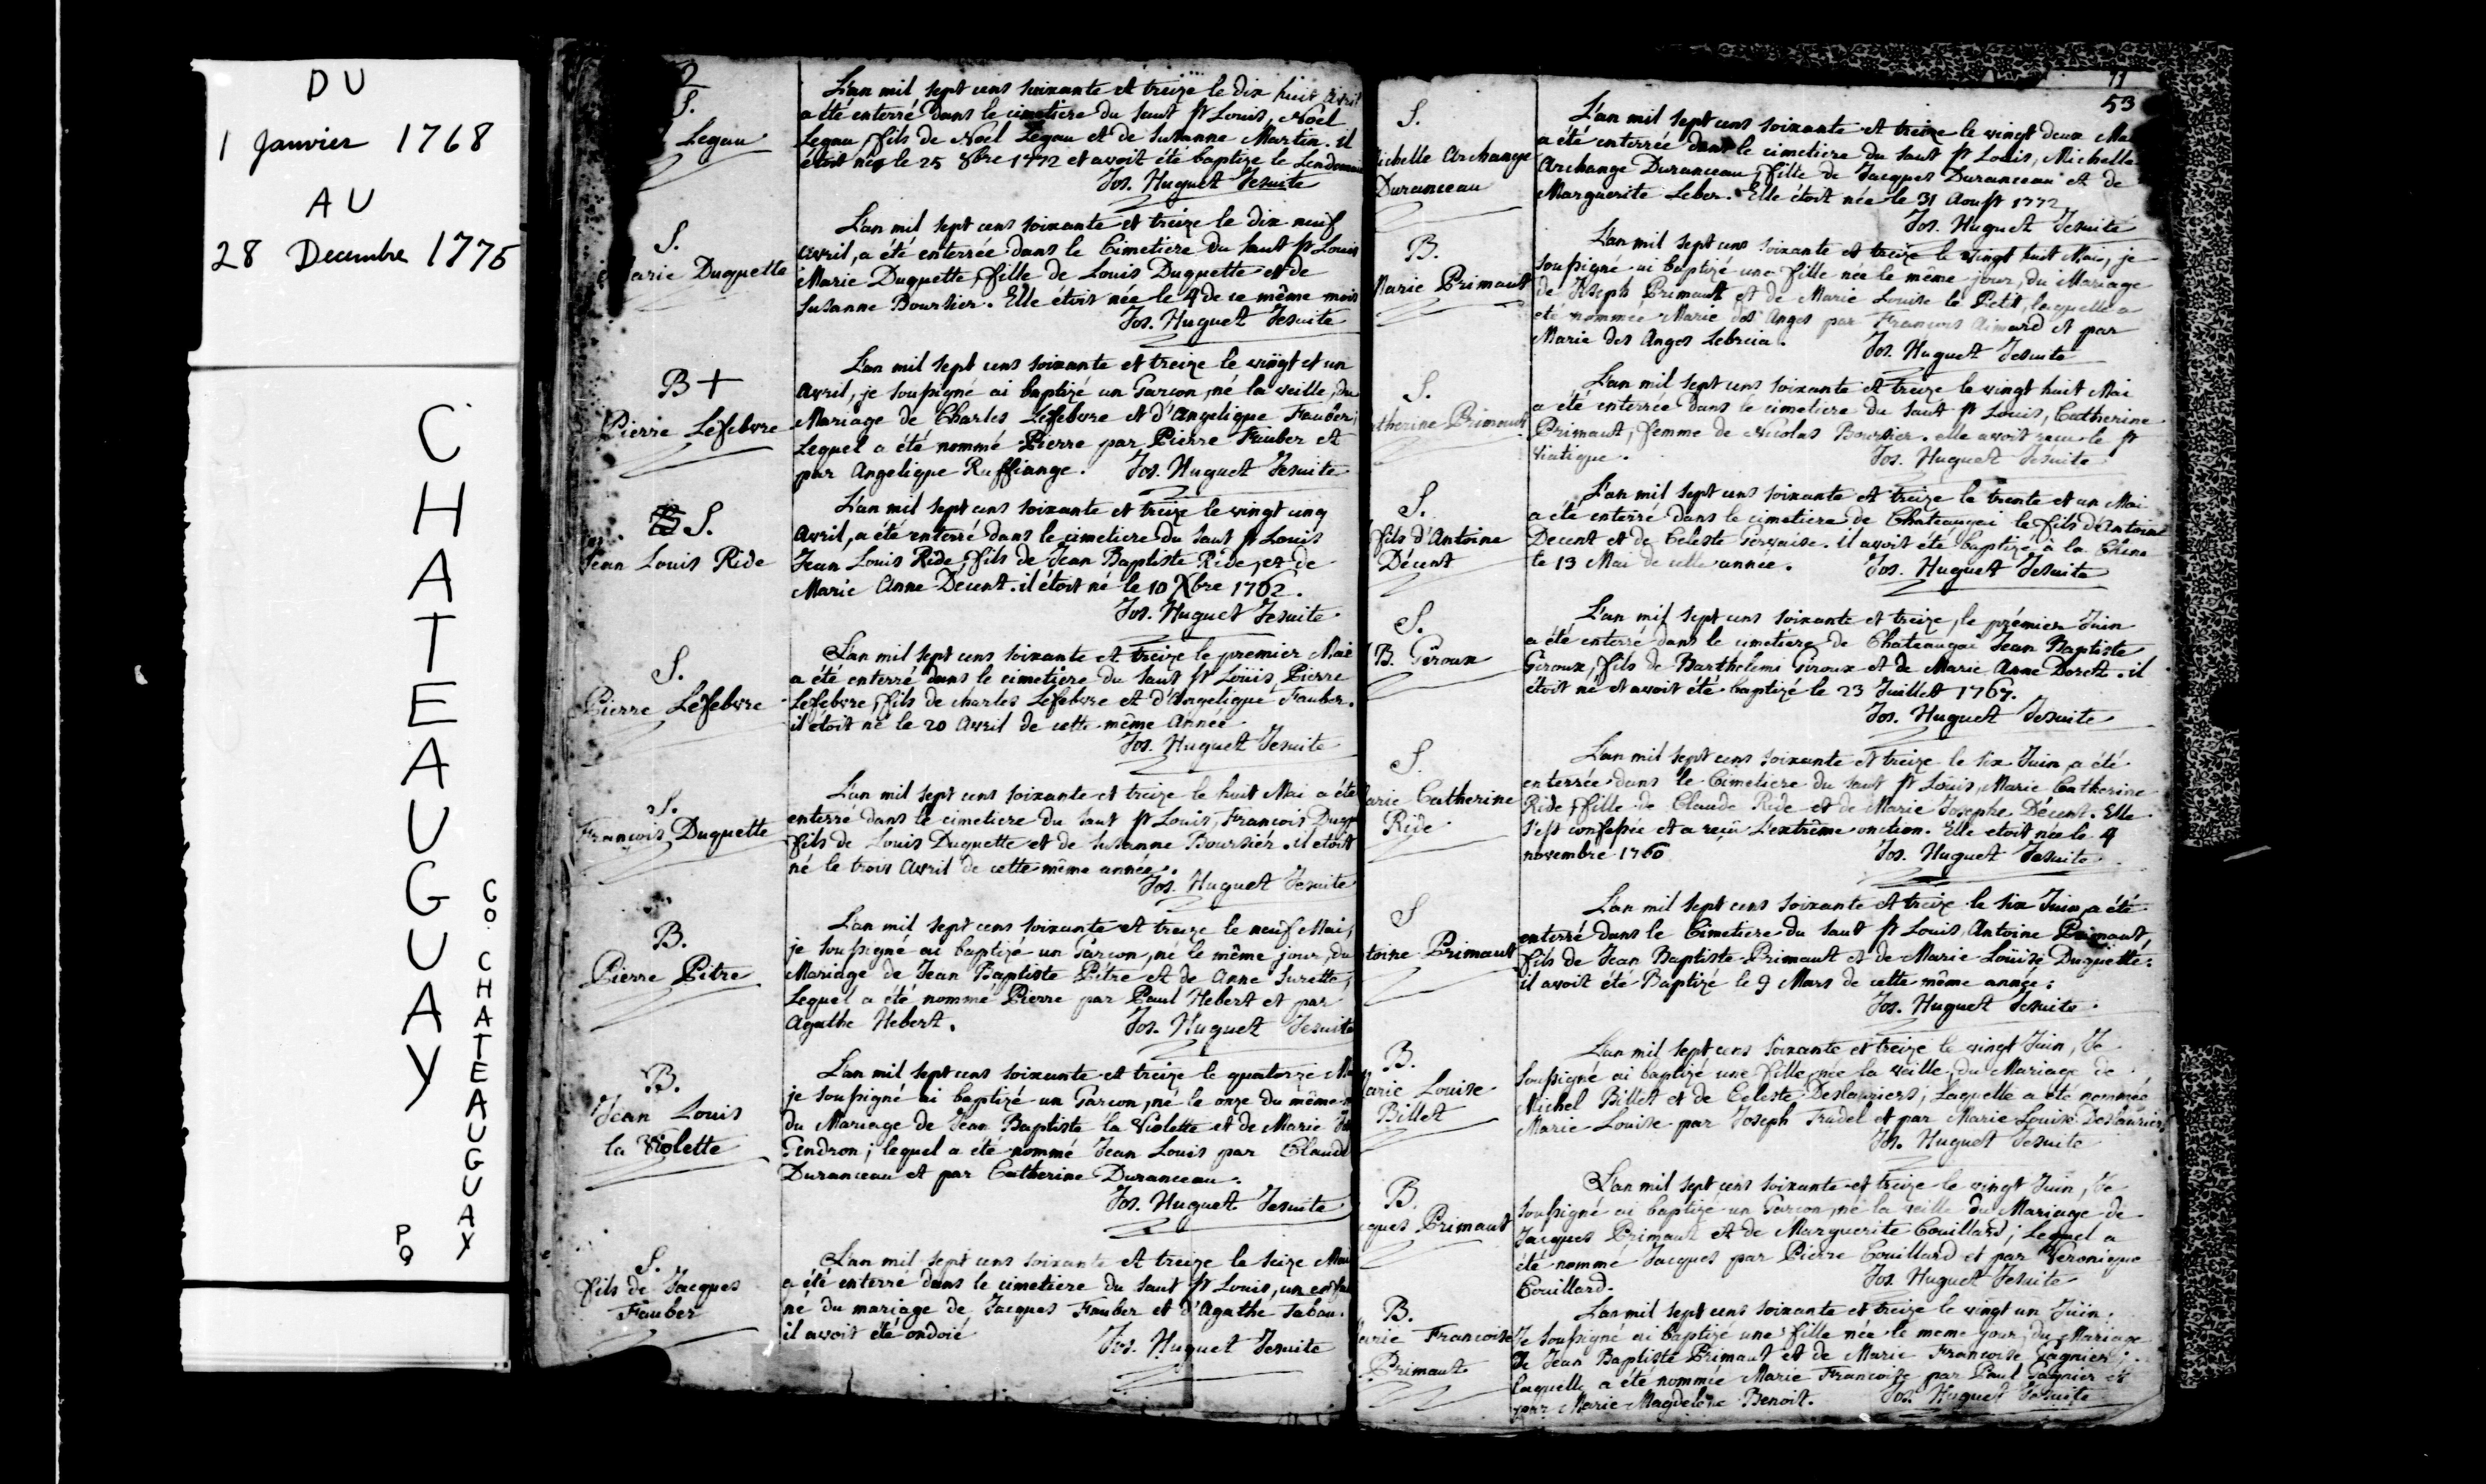 DU
1 Janvier 1768
AU
28 Decembre 1775
CHATEAUGUAY
CO. CHATEAUGUAY
PQ
2
S.
Legau
L'an mil sept cens soixante et treize le dix huit Avril
a été enterré dans le cimetiere du Saut st Louis, Noël
Legau, fils de Noël Legau et de Susanne Martin. il
étoit né le 25 8bre 1772 et avoit été baptizé le Lendemain
Jos. Huguet Jesuite
S.
Marie Duquette
L'an mil sept cens soixante et treize le dix neuf
Avril, a été enterrée dans le Cimetiere du Saut st Louis
Marie Duquette, fille de Louis Duquette et de
Susanne Boursier. Elle étoit née le 4 de ce même mois
Jos. Huguet Jesuite
B +
Pierre Lefebvre
L'an mil sept cens soixante et treize le vingt et un
Avril, je soussigné ai baptizé un Garcon, né la veille, du
Mariage de Charles Lefebvre et d'Angelique Fauber;
Lequel a été nommé Pierre par Pierre Fauber et
par Angelique Ruffiange. Jos. Huguet Jesuite
S.
Jean Louis Ride
L'an mil sept cens soixante et treize le vingt cinq
Avril, a été enterré dans le cimetiere du Saut st Louis
Jean Louis Ride, fils de Jean Baptiste Ride, et de
Marie Anne Décent. il étoit né le 10 Xbre 1762.
Jos. Huguet Jesuite
S.
Pierre Lefebvre
L'an mil sept cens soixante et treize le premier Mai
a été enterré dans le cimetiere du Saut st Louis, Pierre
Lefebvre, fils de charles Lefebvre et d'Angelique Fauber.
il étoit né le 20 Avril de cette même Année
Jos. Huguet Jesuite
S.
Francois Duquette
L'an mil sept cens soixante et treize le huit Mai a été
enterré dans le cimetiere du Saut st Louis, Francois Duqu
fils de Louis Duquette et de Susanne Boursier. il etoit
né le trois Avril de cette même année.
Jos. Huguet Jesuite
B.
Pierre Pitre
L'an mil sept cens soixante et treize le neuf Mai,
je soussigné ai baptizé un Garcon, né le même jour, du
Mariage de Jean Baptiste Pitre et de Anne Surette,
Lequel a été nommé Pierre par Paul Hebert et par
Agathe Hebert. Jos. Huguet Jesuite
B.
Jean Louis
la Violette
L'an mil sept cens soixante et treize le quatorze M
je soussigné ai baptizé un Garcon, né le onze du même
du Mariage de Jean Baptiste la Violette et de Marie
Gendron; lequel a été nommé Jean Louis par Claude
Duranceau et par Catherine Duranceau.
Jos. Huguet Jesuite
S.
fils de Jacques
Fauber
L'an mil sept cens soixante et treize le seize Mai
a été enterré dans le cimetiere du Saut st Louis, un enfan
né du mariage de Jacques Fauber et d'Agathe Sabou.
il avoit été ondoié
Jos. Huguet Jesuite
53
S.
ichelle Archange
Duranceau
L'an mil sept cens soixante et treize le vingt deux Ma
a été enterrée dans le cimetiere du Saut st Louis, Michelle
Archange Duranceau, fille de Jacques Duranceau et de
Marguerite Leber. Elle étoit née le 31 Aoust 1772
Jos. Huguet Jesuite
B.
Marie Primaut
L'an mil sept cens soixante et treize le vingt huit Mai, je
soussigné ai baptizé une fille née le même jour, du Mariage
de Joseph Primaut et de Marie Louise le Petit, laquelle a
été nommée Marie des Anges par Francois Aimard et par
Marie des Anges Lebreia. Jos. Huguet Jesuite
S.
therine Primaut
L'an mil sept cens soixante et treize le vingt huit Mai
a été enterrée dans le cimetiere du Saut st Louis, Catherine
Primaut, femme de Nicolas Boursier. elle avoit recu le st
viatique. Jos. Huguet Jesuite
S.
fils d'Antoine
Décent
L'an mil sept cens soixante et treize le trente et un Mai
a été enterré dans le cimetiere de Chateaugai le fils d'Antoine
Decent et de Celeste Gervaise. il avoit été baptizé à la Chine
le 13 Mai de cette année. Jos. Huguet Jesuite
S.
B. Giroux
L'an mil sept cens soixante et treize, le prémier Juin
a été enterré dans le cimetiere de Chateaugai Jean Baptiste
Giroux, fils de Barthelemi Giroux et de Marie Anne Doret. il
étoit né et avoit été baptizé le 23 Juillet 1767.
Jos. Huguet Jesuite
S.
arie Catherine
Ride
L'an mil sept cens soixante et treize le six Juin a été
enterrée dans le Cimetiere du Saut st Louis, Marie Catherine
Ride, fille de Claude Ride et de Marie Josephe Décent. Elle
s'est confessée et a reçu L'extrême onction. Elle etoit née le 4
novembre 1760 Jos. Huguet Jesuite
S
toine Primaut
L'an mil sept cens soixante et treize le six Juin, a été
enterré dans le Cimetiere du Saut st Louis, Antoine Primaut,
fils de Jean Baptiste Primaut et de Marie Louise Duquette.
il avoit été Baptizé le 9 Mars de cette même année.
Jos. Huguet Jesuite
B.
Marie Louise
Billet
L'an mil sept cens soixante et treize le vingt Juin, Je
soussigné ai baptizé une fille, née la veille, du Mariage de
Michel Billet et de Celeste Deslauriers; Laquelle a été nommée
Marie Louise par Joseph Tradel et par Marie Louise Deslauriers
Jos. Huguet Jesuite
B.
cques Primaut
L'an mil sept cens soixante et treize le vingt Juin, Je
soussigné ai baptizé un Garcon, né la veille du Mariage de
Jacques Primaut et de Marguerite Couillard; Lequel a
été nommé Jacques par Pierre Couillard et par Veronique
Couillard. Jos. Huguet Jesuite
B.
arie Francoise
Primaut
L'an mil sept cens soixante et treize le vingt un Juin.
Je soussigné ai baptizé une fille née le meme jour, du Mariage
de Jean Baptiste Primaut et de Marie Francoise Gagnier;
laquelle a été nommée Marie Francoise par Paul Gagnier et
par Marie Magdelene Benoit. Jos. Huguet Jesuite